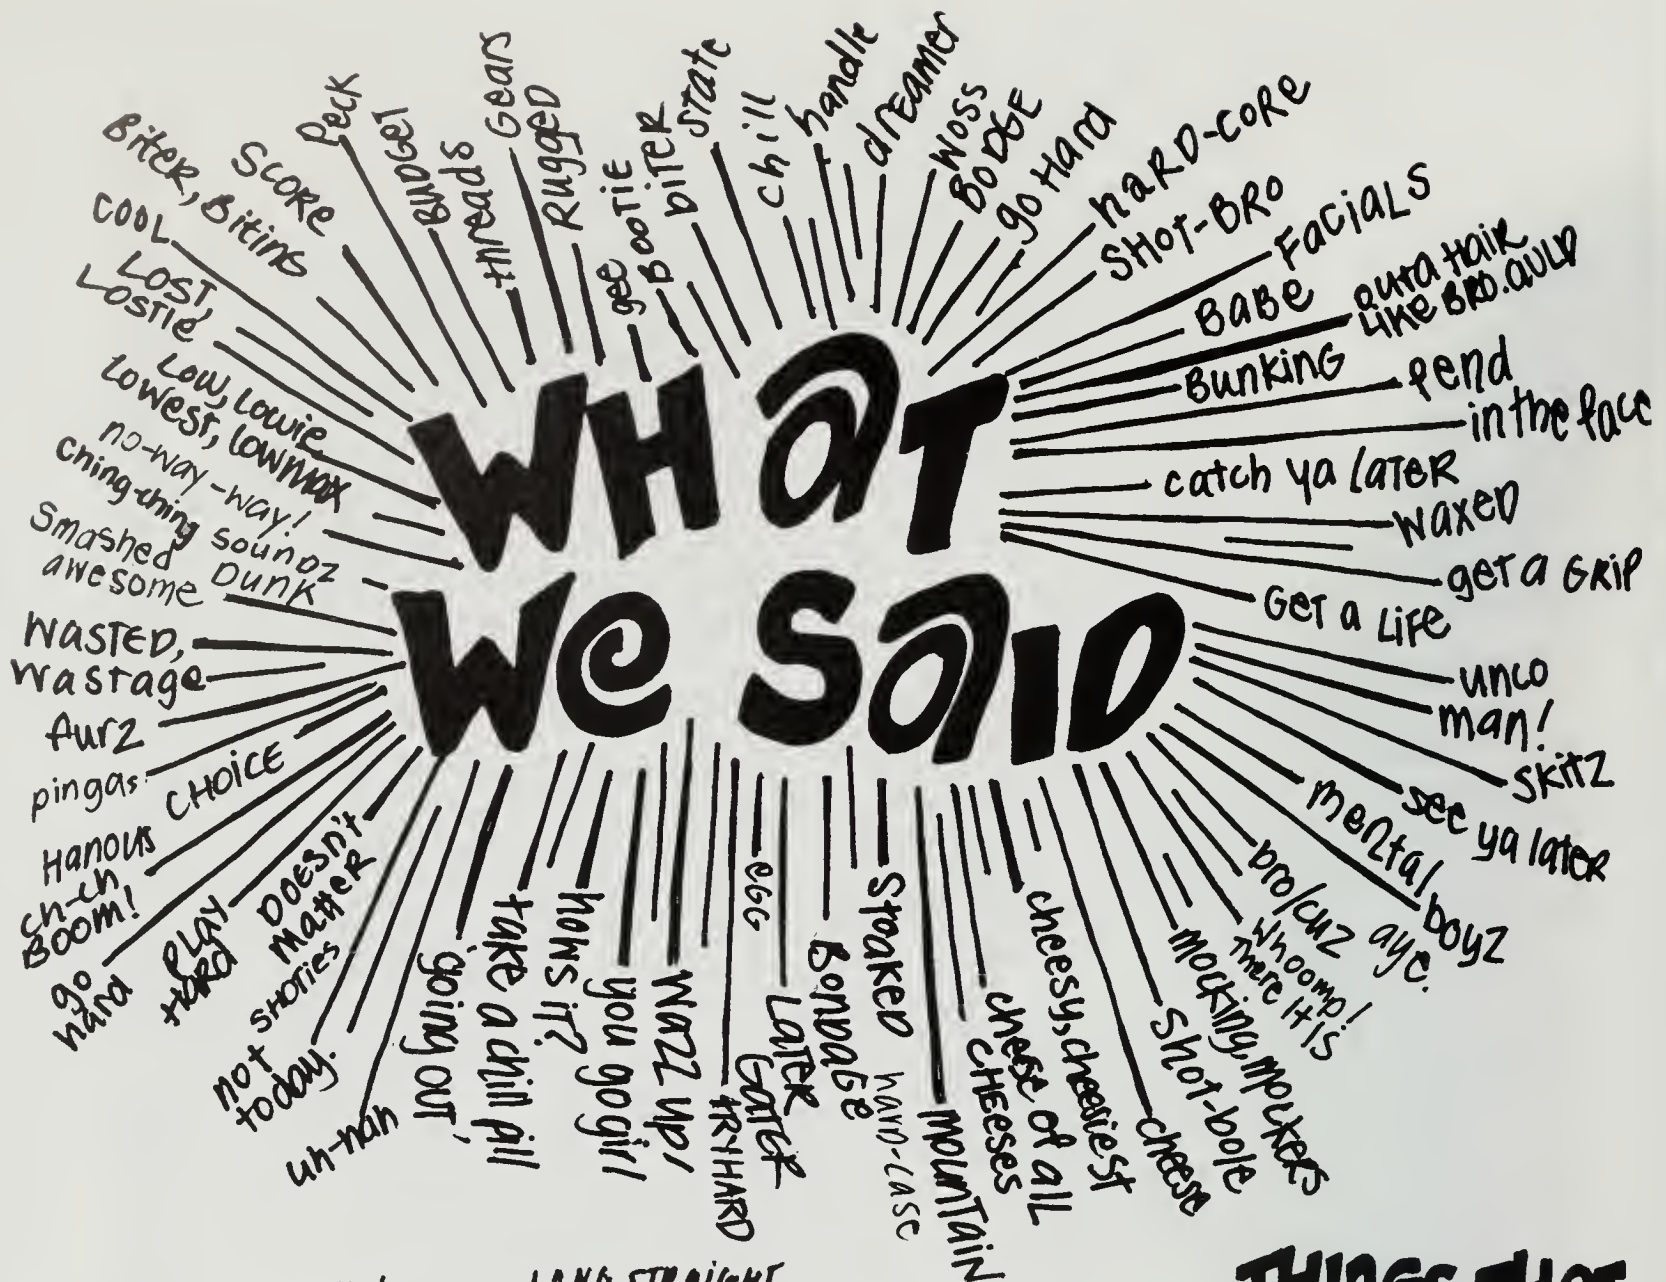 WHAT
WE SAID
Biter, Biting
Score
Peck
Budget
threads
Gears
Rugged
gee
BOOTIE
BiTER
State
chill
handle
dreamer
Woss
BODGE
go Hard
HARD-CORE
SHOT-BRO
FACiALS
BABE
outa Hair
LIKE BRO. AULD
BUNKING
pend
in the face
catch ya LATER
WAXED
get a GRiP
GET a LiFe
unco
man!
SKitZ
see ya later
mental
boyz
bro/cuz
aye.
Whoomp!
There It Is
mocking, mockers
Shot-bole
cheese
cheesy, cheesiest
cheese of all
CHEESES
MOUNTAIN
hard-case
Stoaked
BonDaGe
LATER
GATER
egg
tRYHARD
Wazz up!
you go girl
hows it?
take a chill pill
'going out'
uh-nah
not today.
shories
Doesn't
matter
PLAY
HARD
go
hard
ch-ch
BOOM!
HANOUS
CHOICE
pingas.
furz
WASTED,
Wastage
Smashed
awesome Dunk
ching-ching soundz
no-way-way!
Low, Lowie
Lowest, lowmax
LOST,
LOSTIE
COOL
LONG STRAIGHT
THINGS THAT